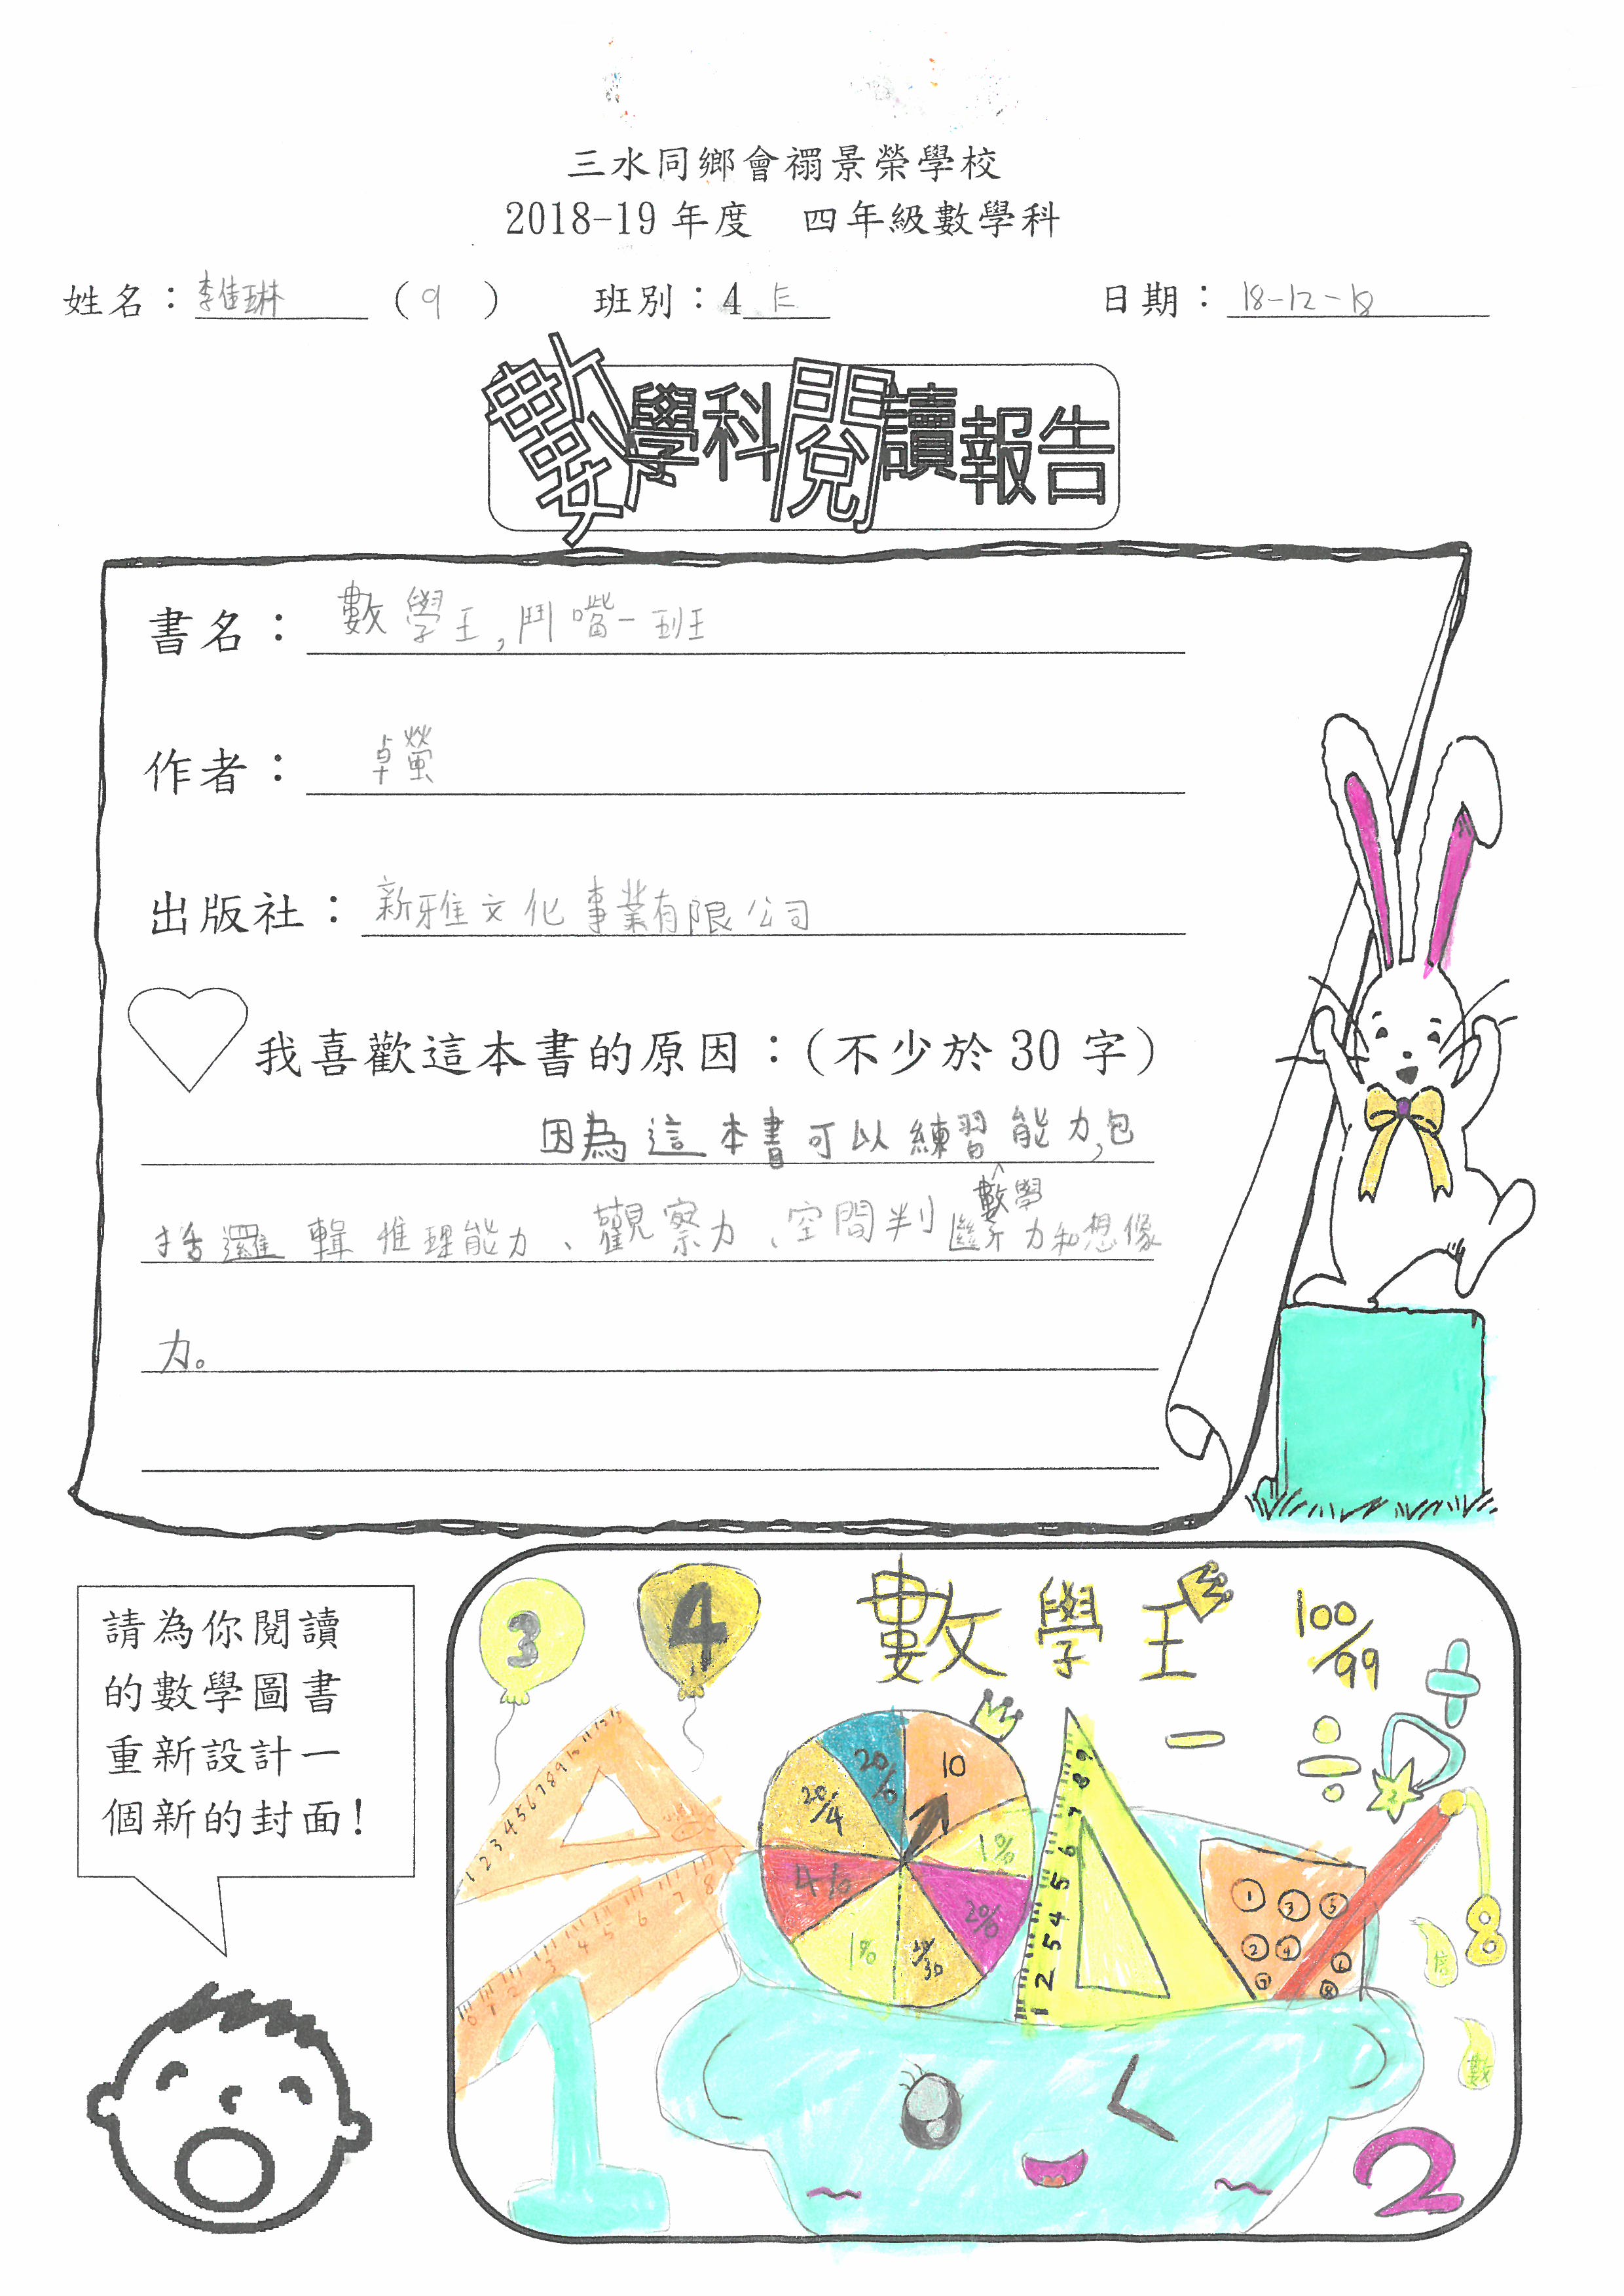 三水同鄉會禤景榮學校
2018-19 年度 四年級數學科
姓名：李佳琳 （9） 班別：4E 日期：18-12-18
數學科閱讀報告
書名：數學王,鬥嘴一班
作者：卓瑩
出版社：新雅文化事業有限公司
我喜歡這本書的原因：（不少於 30 字）
因為這本書可以練習數學能力,包
括邏輯推理能力、觀察力、空間判斷力和想像
力。
請為你閱讀
的數學圖書
重新設計一
個新的封面！
3 4 數學王 100/99
1 2 3 4 5 6 7 8 9
20% 10
20/4 1%
4% 2%
1% 30
0 1 2 3 4 5 6 7 8
1 2 5 4 5 6 7 8 9
1 3 5
2 4 6
7 8
2
8
數
1 2